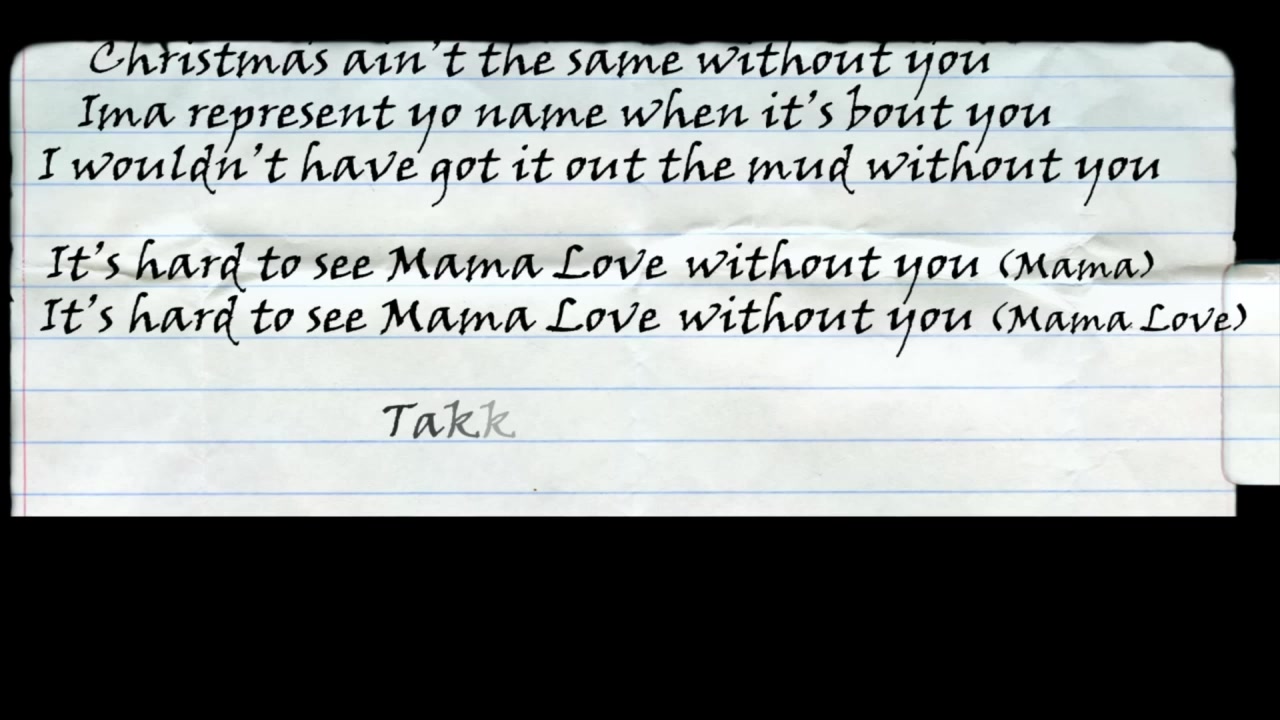 Christmas ain't the same without you
Ima represent yo name when it's bout you
I wouldn't have got it out the mud without you
It's hard to see Mama Love without you (Mama)
It's hard to see Mama Love without you (Mama Love)
Takk